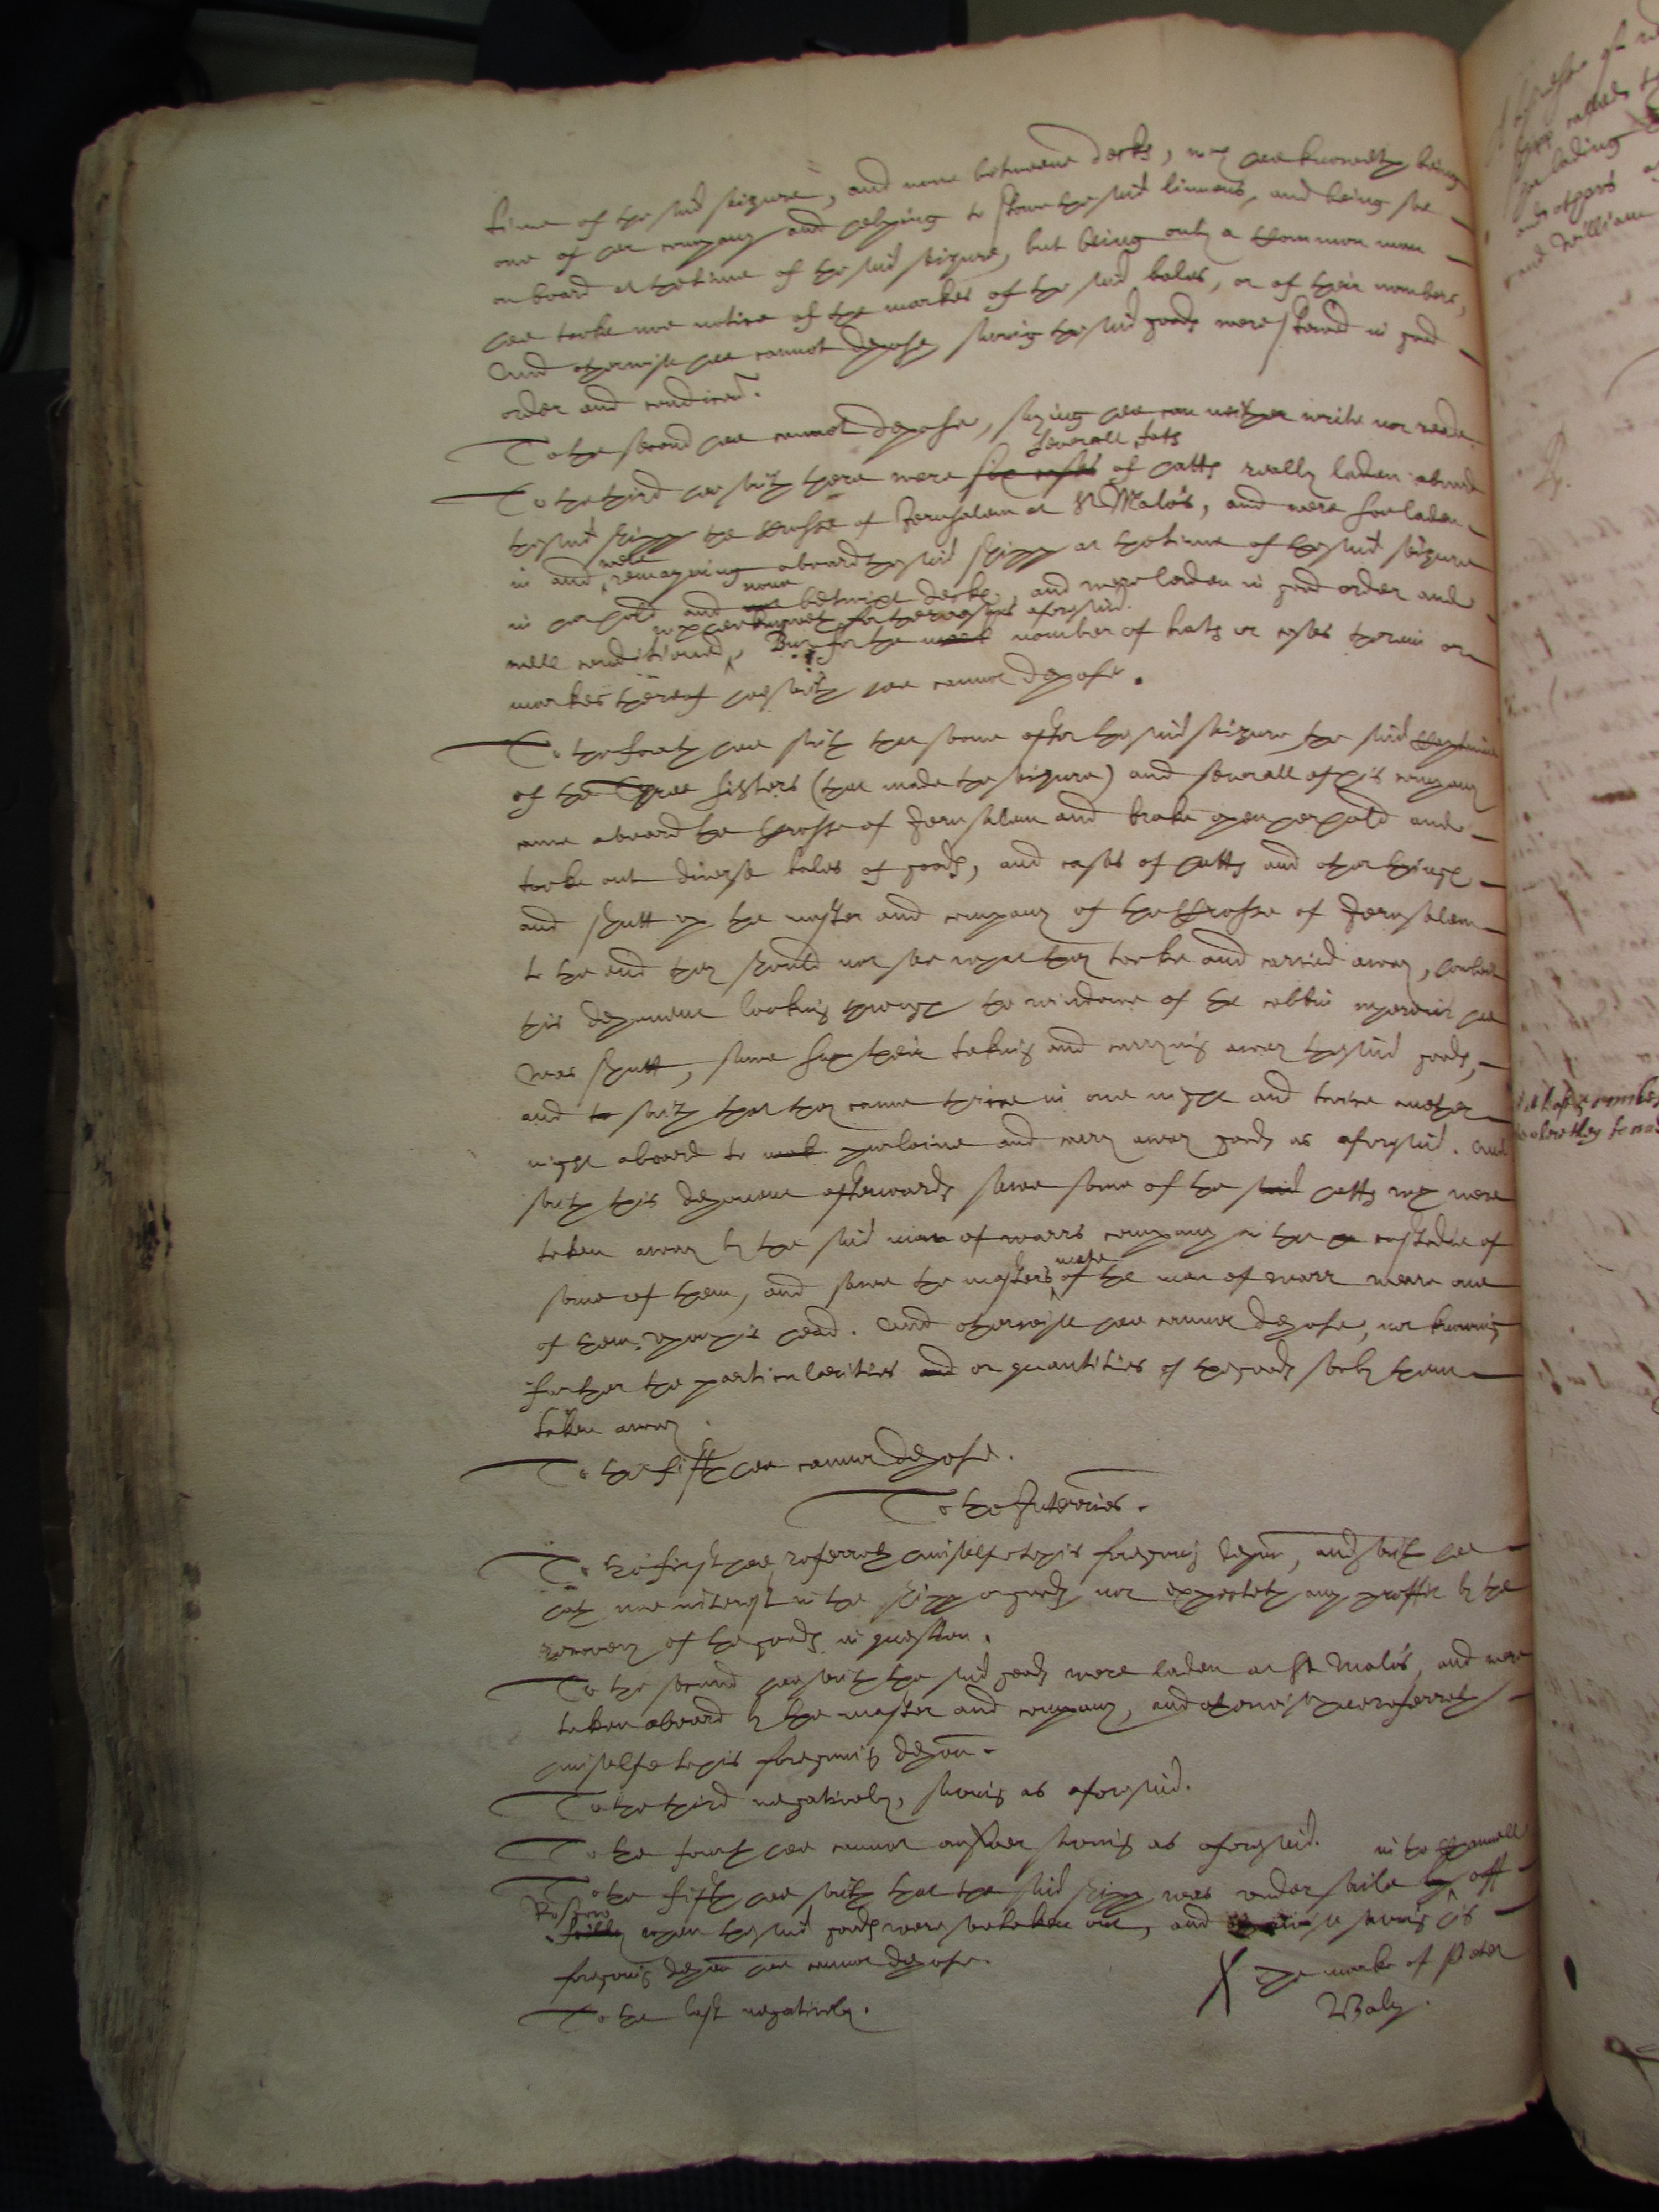 time of the said seizure, and none betweene decks, wch hee knoweth being
one of her company and helping to stowe the said linnens, and being soe
on board at the time of the said seizure, but being only a Common man
hee tooke noe notice of the markes of the said bales, or of their nombers,
And otherwise hee cannot depose saving the said goods were stowed in good
order and condicon.
To the second hee cannot depose, saying hee can neither write nor reade.
severall fats
To the third hee saith there were six casks of hatts really laden aboard
the said shipp the Crosse of Jerusalem at St Malo's, and were soe laden
were
in and remayning aboard the said shipp at the time of the said seizure
none
in her hold and not betwixt decks, and were laden in good order and
wch hee knoweth for the reasons aforesaid.
well conditioned, But for the nomber of hats or cases therein or
markes thereof hee saith hee cannot depose.
To the fourth hee saith that soone after the said seizure the said Captaine
of the Three Sisters (that made the seizure) and severall of his company
came aboard the Crosse of Jerusalem and brake open her hold and
tooke out diverse bales of goods, and cases of hatts and other things
and shutt up the master and company of the Crosse of Jerusalem
to the end they should not see what they tooke and carried away,
this deponent looking through the windowe of the cabbin wherein hee
was shutt, sawe such their taking and carrying away the said goods,
and to saith that they came thrice in one night and twice another
night aboard to purloine and carry away goods as aforesaid. And
saith this deponent afterwards sawe some of the said hatts wch were
taken away by the said man of warrs company in the custodie of
mate
some of them, and sawe the masters of the man of warr weare one
of them upon his head. And otherwise hee cannot depose, not knowing
further the particularities and or quantities of the goods soe by them
taken away.
To the fifth hee cannot depose.
To the Interries.
To the first hee referreth himselfe to his foregoing depon, and saith hee
hath noe interest in the shipp or goods nor expecteth any proffit by the
recovery of the goods in question.
To the second hee saith the said goods were laden at St Malo's, and were
taken aboard by the master and company, and otherwise hee referreth
himselfe to his foregoing depon.
To the third negatively, saving as aforesaid.
To the fourth hee cannot answer saving as aforesaid.
in the channell
To the fifth hee saith that the said shipp was under saile by off
when the said goods were soe taken out, and otherwise saving his
foregoing depon hee cannot depose.
To the last negatively.
X The marke of Peter
Baly.